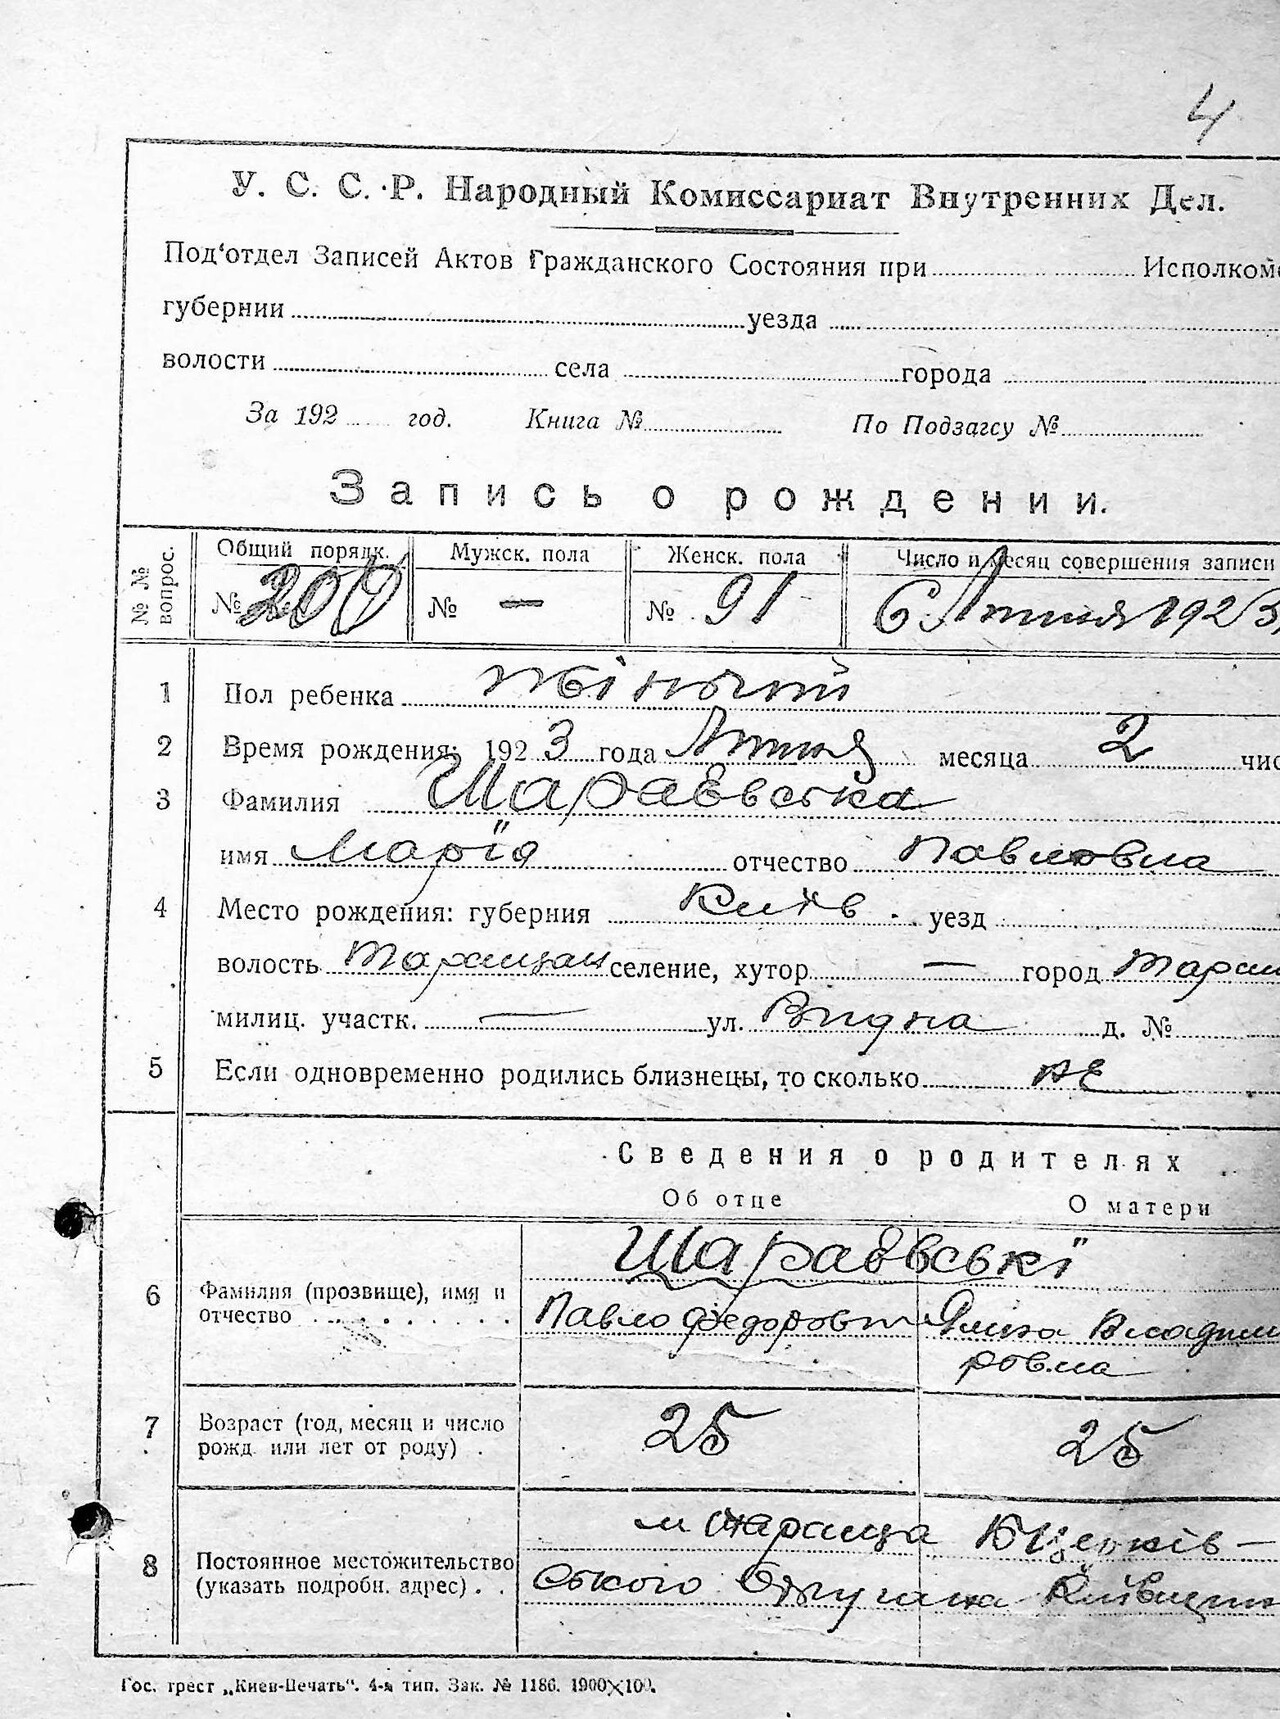 4
У. С. С. Р. Народный Комиссариат Внутренних Дел.
Под'отдел Записей Актов Гражданского Состояния при Исполком
губернии уезда
волости села города
За 192 год. Книга № По Подзагсу №
Запись о рождении.
№ № вопрос. Общий порядк. Мужск. пола Женск. пола Число и месяц совершения записи
№ 200 № — № 91 6 Липня 1923
1 Пол ребенка жіночий
2 Время рождения: 1923 года Липня месяца 2 чис
3 Фамилия Шараєвська
имя Марія отчество Павловна
4 Место рождения: губерния Київ. уезд
волость Таращан селение, хутор — город Тара
милиц. участк. — ул. д. №
5 Если одновременно родились близнецы, то сколько не
Сведения о родителях
Об отце О матери
Шараєвські
6 Фамилия (прозвище), имя и
отчество Павло Федоров Владими
ровна
7 Возраст (год, месяц и число
рожд. или лет от роду) . 25 25
м Тараща БЦерків-
8 Постоянное местожительство
(указать подробн. адрес) . . ського Округа Київщин
Гос. трест „Киев-Печать“. 4-я тип. Зак. № 1186. 1900×100.